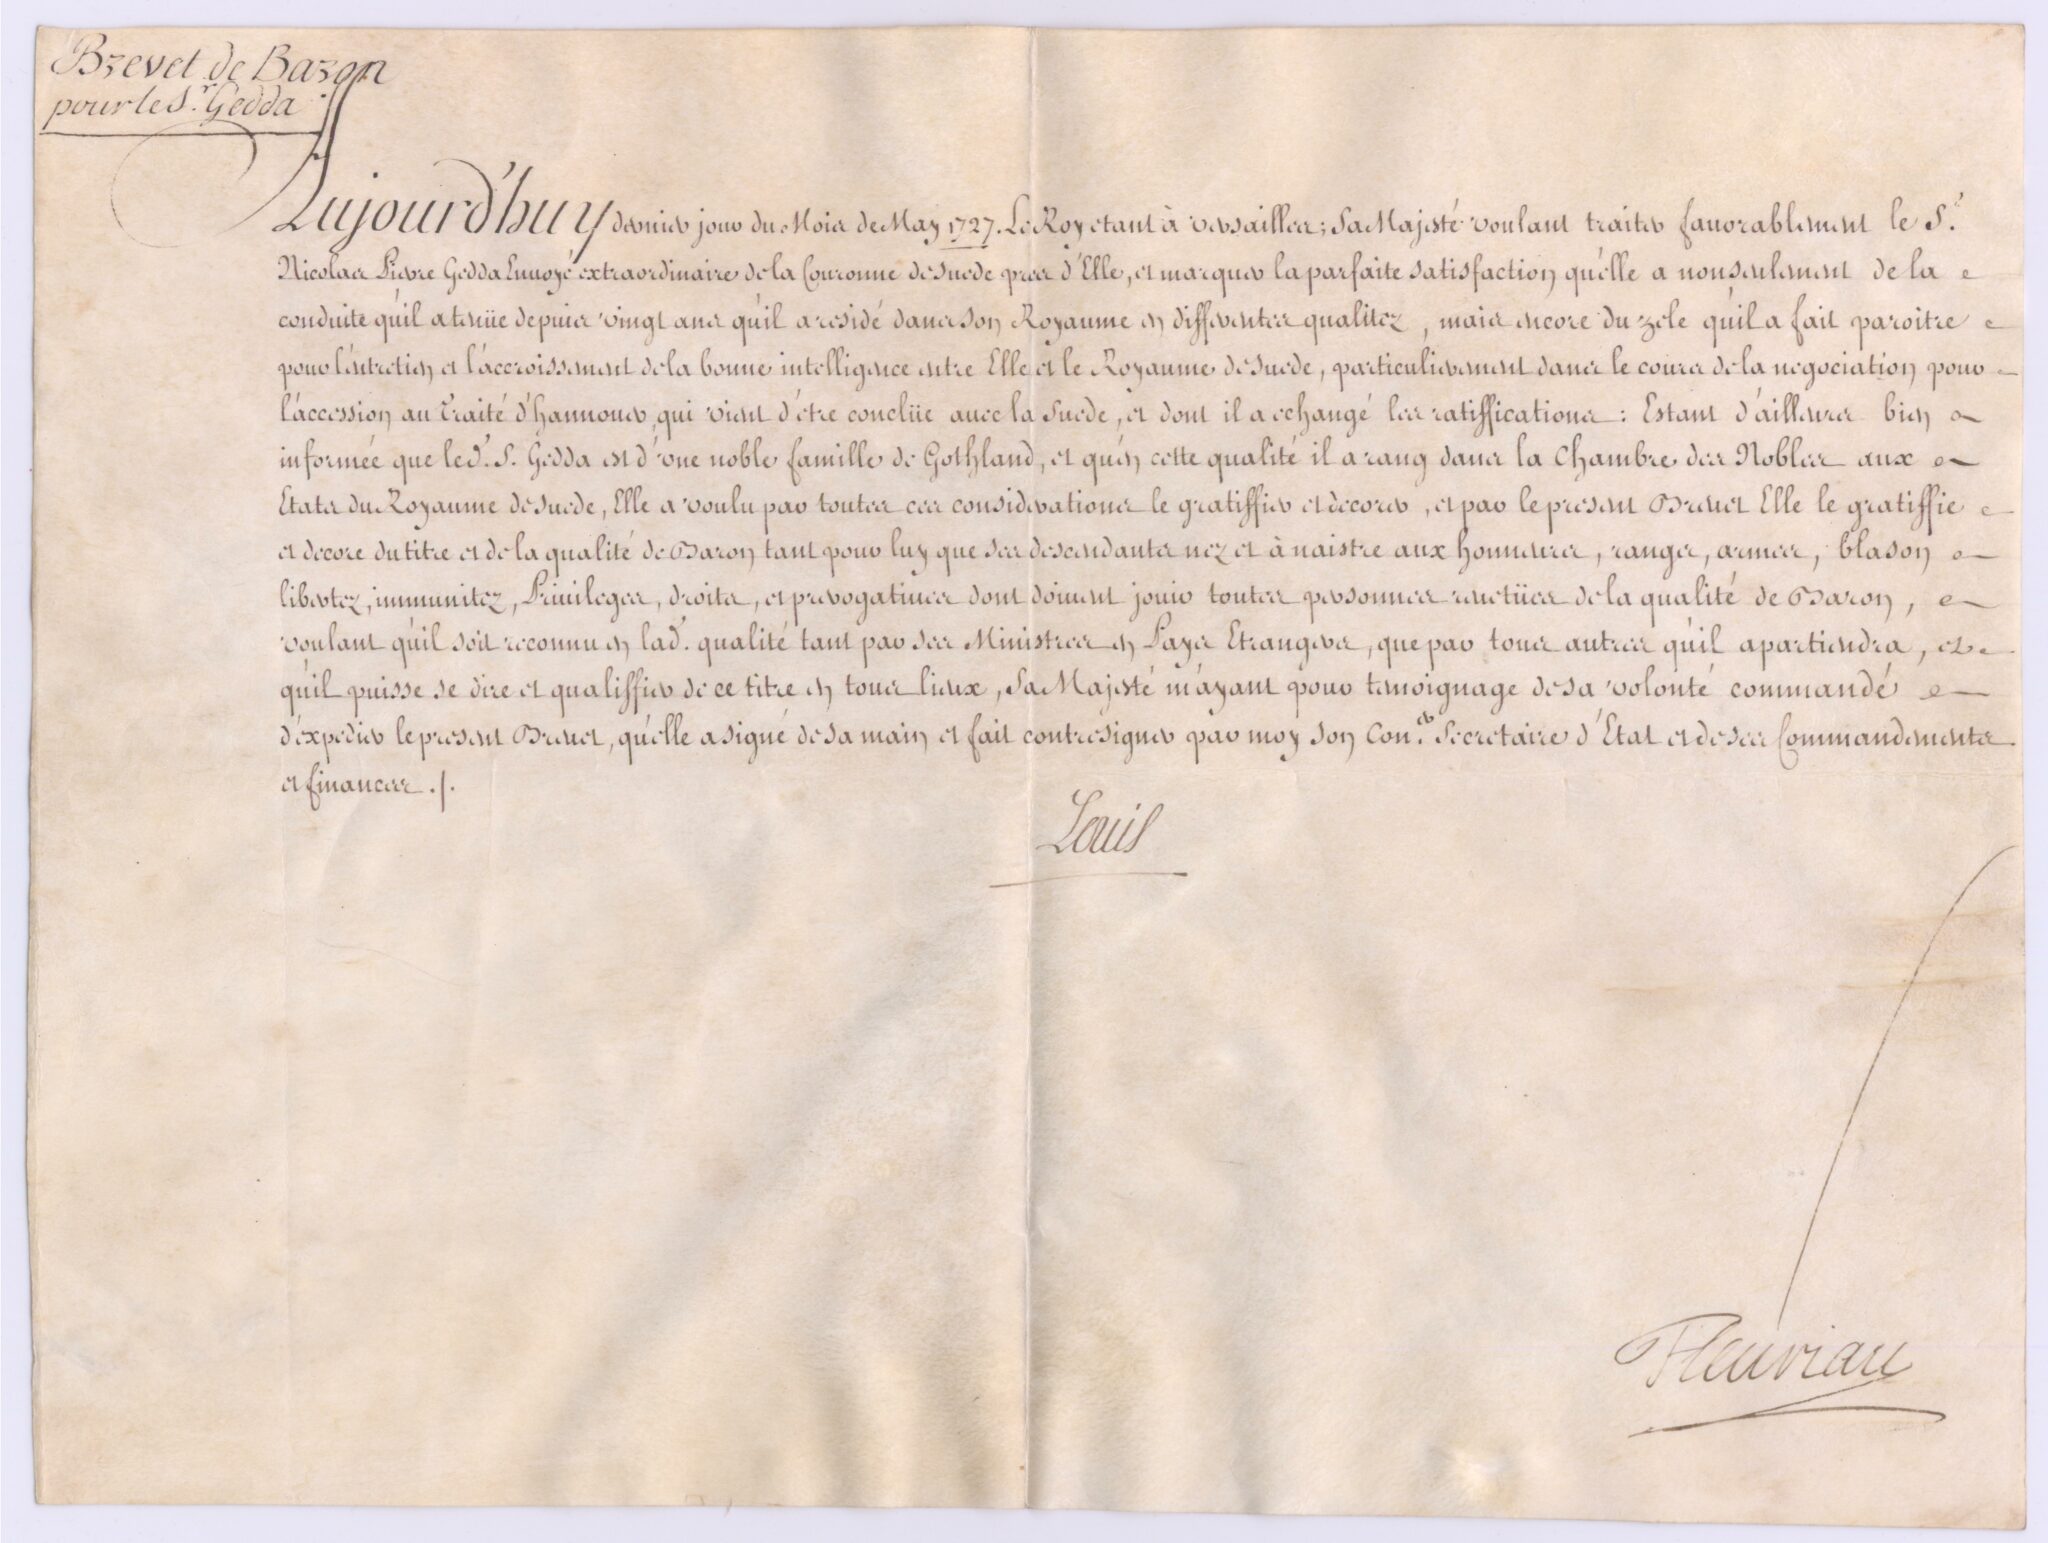 Brevet de Baron
pour le S.r Gedda
Aujourd'huy dernier jour du Mois de May 1727. Le Roy etant à Versailles; Sa Majesté voulant traiter favorablement le S.r
Nicolas Pierre Gedda Envoyé extraordinaire de la Couronne de Suede pres d'Elle, et marquer la parfaite satisfaction qu'elle a nonseulement de la
conduite qu'il a tenüe depuis vingt ans qu'il a residé dans son Royaume en differentes qualitez, mais encore du zele qu'il a fait paroitre
pour l'entretien et l'accroissement de la bonne intelligence entre Elle et le Royaume de Suede, particulierement dans le cours de la negociation pour
l'accession au Traité d'hannover, qui vient d'être conclüe avec la Suede, et dont il a echangé les ratiffications: Estant d'ailleurs bien
informée que led. S. Gedda est d'une noble famille de Gothland, et qu'en cette qualité il a rang dans la Chambre des Nobles aux
Etats du Royaume de Suede, Elle a voulu par toutes ces considerations le gratiffier et decorer, et par le present Brevet Elle le gratiffie
et decore du titre et de la qualité de Baron tant pour luy que ses descendants nez et à naistre aux honneurs, rangs, armes, blason
libertez, immunitez, Privileges, droits, et prerogatives dont doivent jouir toutes personnes revetües de la qualité de Baron,
voulant qu'il soit reconnu en lad. qualité tant par ses Ministres en Pays Etrangers, que par tous autres qu'il apartiendra, et
qu'il puisse se dire et qualiffier de ce titre en tous lieux, Sa Majesté m'ayant pour temoignage de sa volonté commandé
d'expedier le present Brevet, qu'elle a signé de sa main et fait contresigner par moy son Con.er Secretaire d'Etat et de ses Commandements
et finances ./.
Louis
Fleuriau